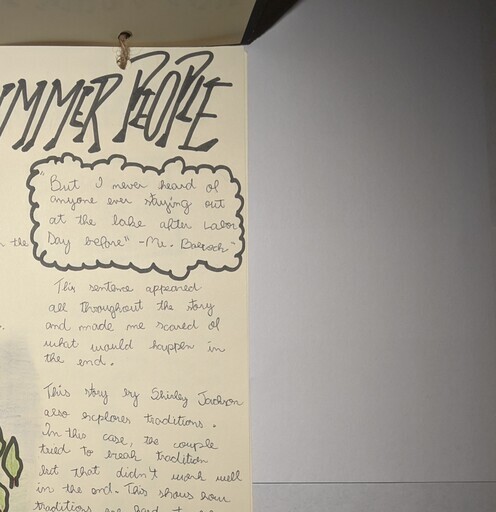 UMMER PEOPLE
"But I never heard of
anyone ever staying out
at the lake after Labor
Day before" - Mr. Babcock
the
This sentence appeared
all throughout the story
and made me scared of
what would happen in
the end.
This story by Shirley Jackson
also explores traditions.
In this case, the couple
tried to break tradition
but that didn't work well
in the end. This shows how
traditions are hard to